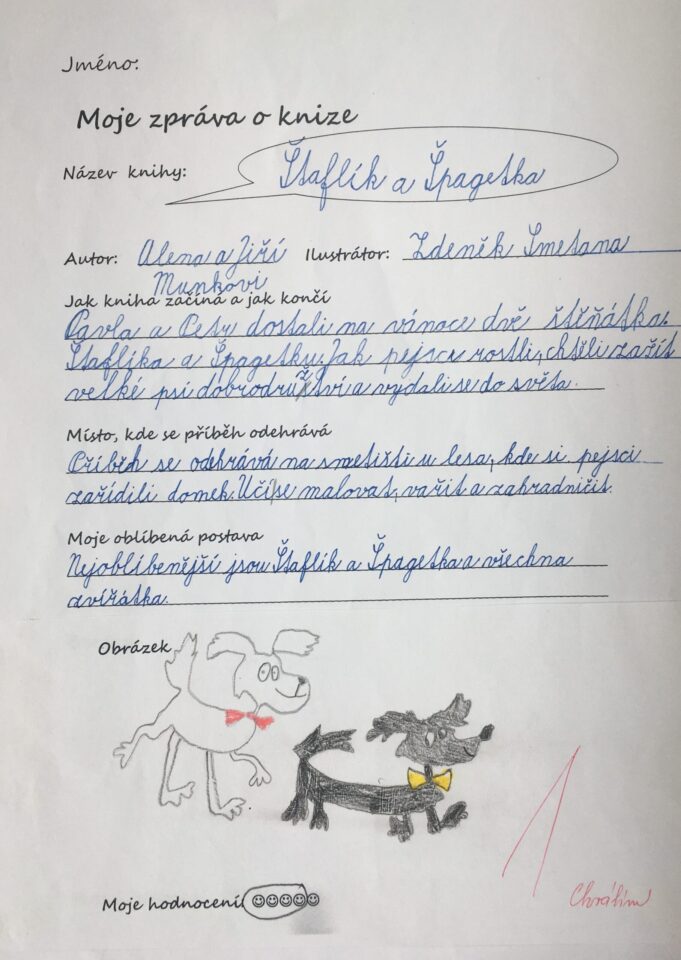 Jméno:
Moje zpráva o knize
Název knihy: Štaflík a Špagetka
Autor: Alena a Jiří Ilustrátor: Zdeněk Smetana
Munkovi
Jak kniha začíná a jak končí
Pavla a Petr dostali na vánoce dvě štěňátka.
Štaflíka a Špagetku. Jak pejsci rostli, chtěli zažít
velké psí dobrodružství a vydali se do světa.
Místo, kde se příběh odehrává
Příběh se odehrává na smetišti u lesa, kde si pejsci
zařídili domek. Učí se malovat, vařit a zahradničit.
Moje oblíbená postava
Nejoblíbenější jsou Štaflík a Špagetka a všechna
zvířátka.
Obrázek
1
Chválím
Moje hodnocení